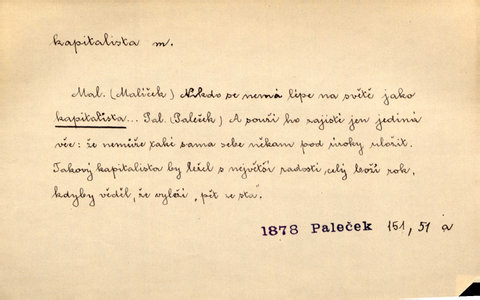 kapitalista m.
Mal. (Malíček) Nikdo se nemá lépe na světě jako
kapitalista... Pal. (Paleček) A souží ho zajisté jen jediná
věc: že nemůže také sama sebe někam pod úroky uložit.
Takový kapitalista by ležel s největší radostí celý boží rok,
kdyby věděl, že vyleží „pět ze sta".
1878 Paleček 151, 51 a